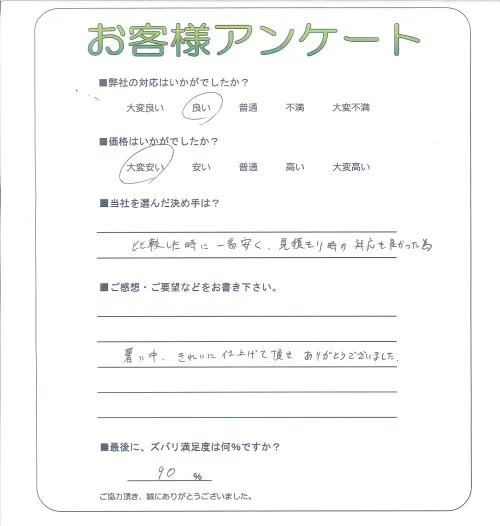 お客様アンケート
■弊社の対応はいかがでしたか？
大変良い 良い 普通 不満 大変不満
■価格はいかがでしたか？
大変安い 安い 普通 高い 大変高い
■当社を選んだ決め手は？
比較した時に一番安く、見積もり時の対応も良かった為
■ご感想・ご要望などをお書き下さい。
暑い中、きれいに仕上げて頂き ありがとうございました。
■最後に、ズバリ満足度は何%ですか？
90 %
ご協力頂き、誠にありがとうございました。